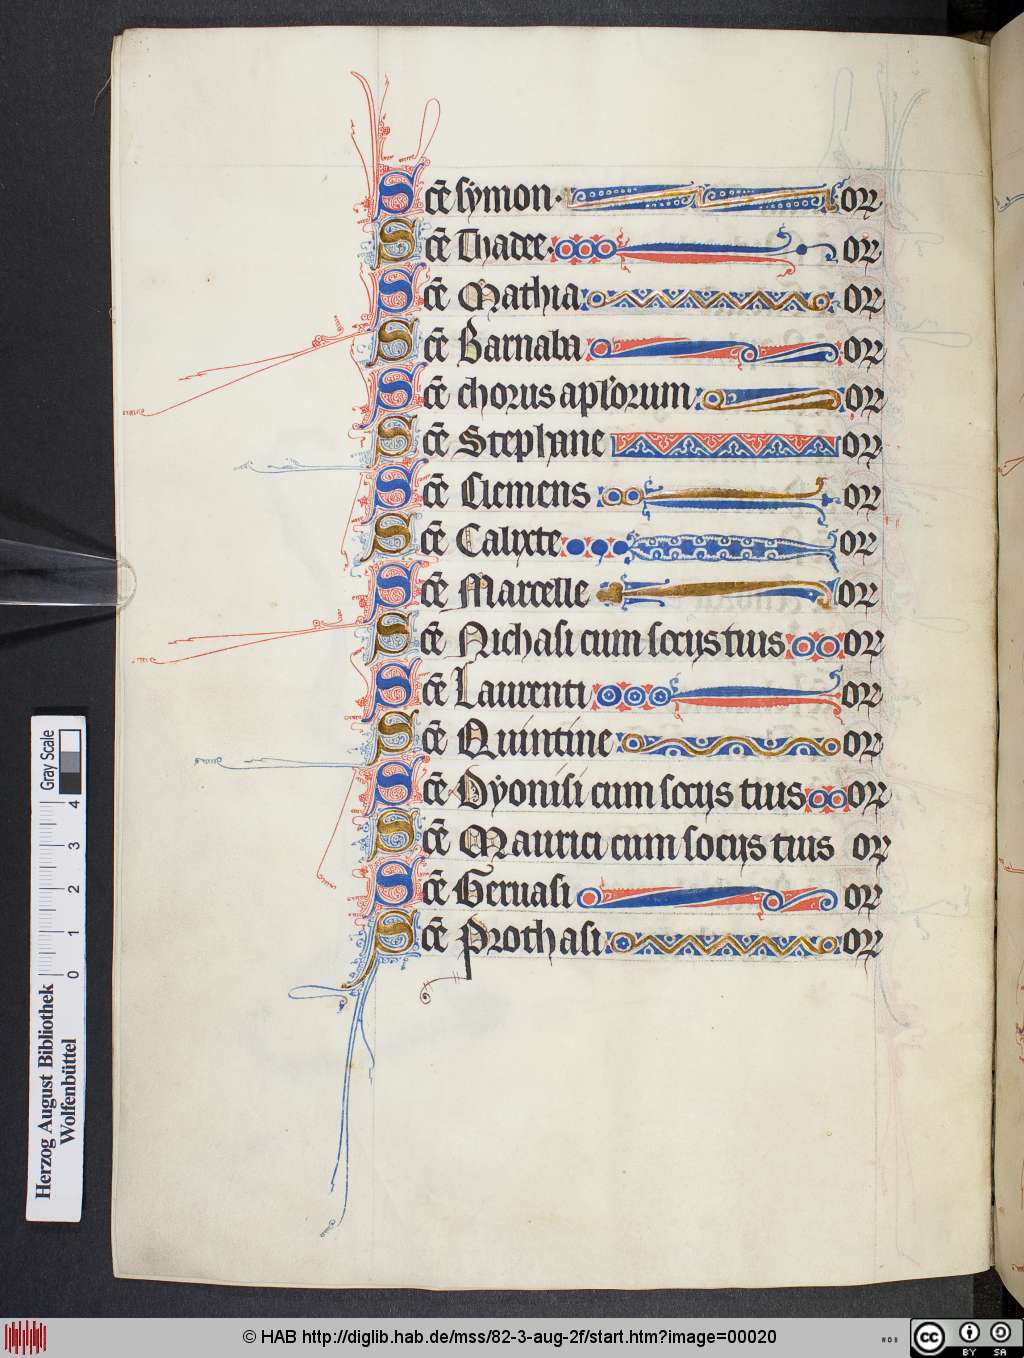 Sce symon. or
Sce Thadee. or
Sce Mathia or
Sce Barnaba or
Sce chorus aplorum or
Sce Stephane or
Sce Clemens or
Sce Calixte or
Sce Marcelle or
Sce Nichasi cum socijs tuis or
Sce Laurenti or
Sce Quintine or
Sce Dyonisi cum socijs tuis or
Sce Maurici cum socijs tuis or
Sce Geruasi or
Sce Prothasi or
Gray Scale
0 1 2 3 4
Herzog August Bibliothek
Wolfenbüttel
© HAB http://diglib.hab.de/mss/82-3-aug-2f/start.htm?image=00020
WDB
cc BY SA